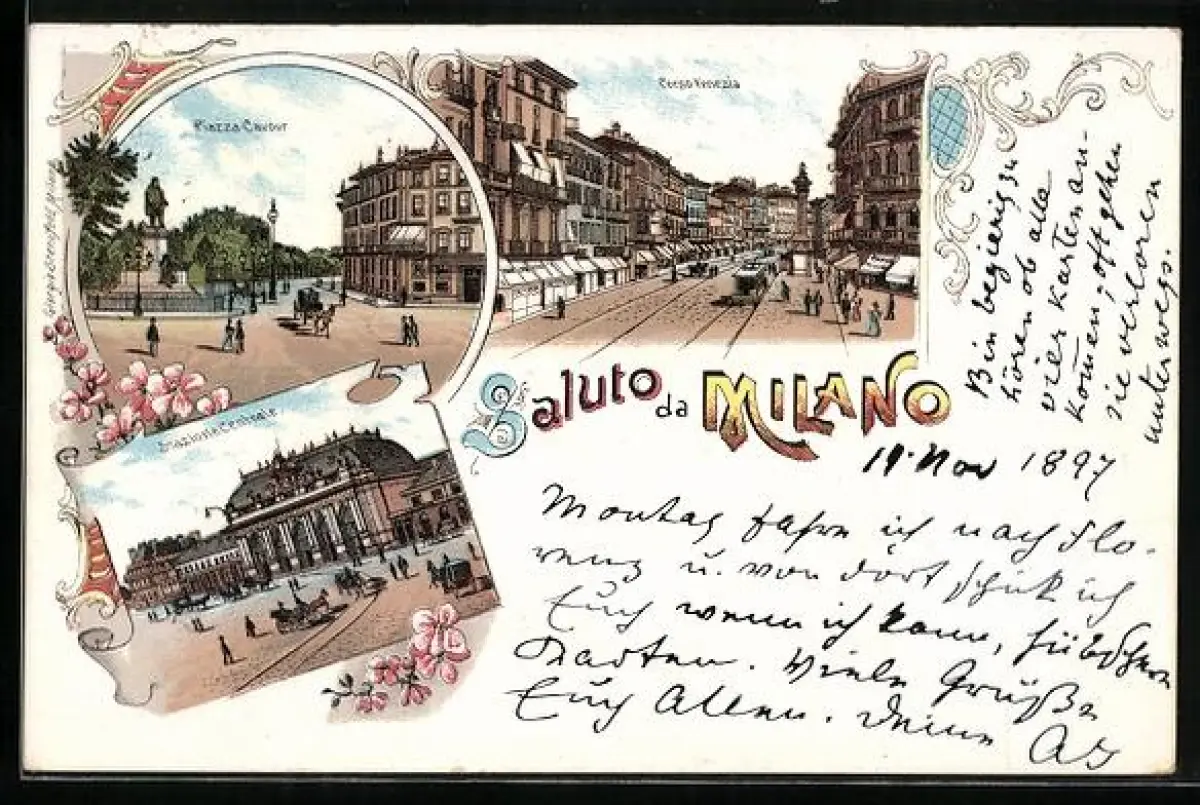 Piazza Cavour
Corso Venezia
Stazione Centrale
Saluto da MILANO
19. Nov 1897
Montag fahre ich nach Flo-
renz u. von dort schick ich
Euch wenn ich kann, hübschere
Karten. Viele Grüße
Euch Allen. Deine
Bin begierig zu
hören ob alle
vier Karten an-
kommen; oft gehen
sie verloren
unterwegs.